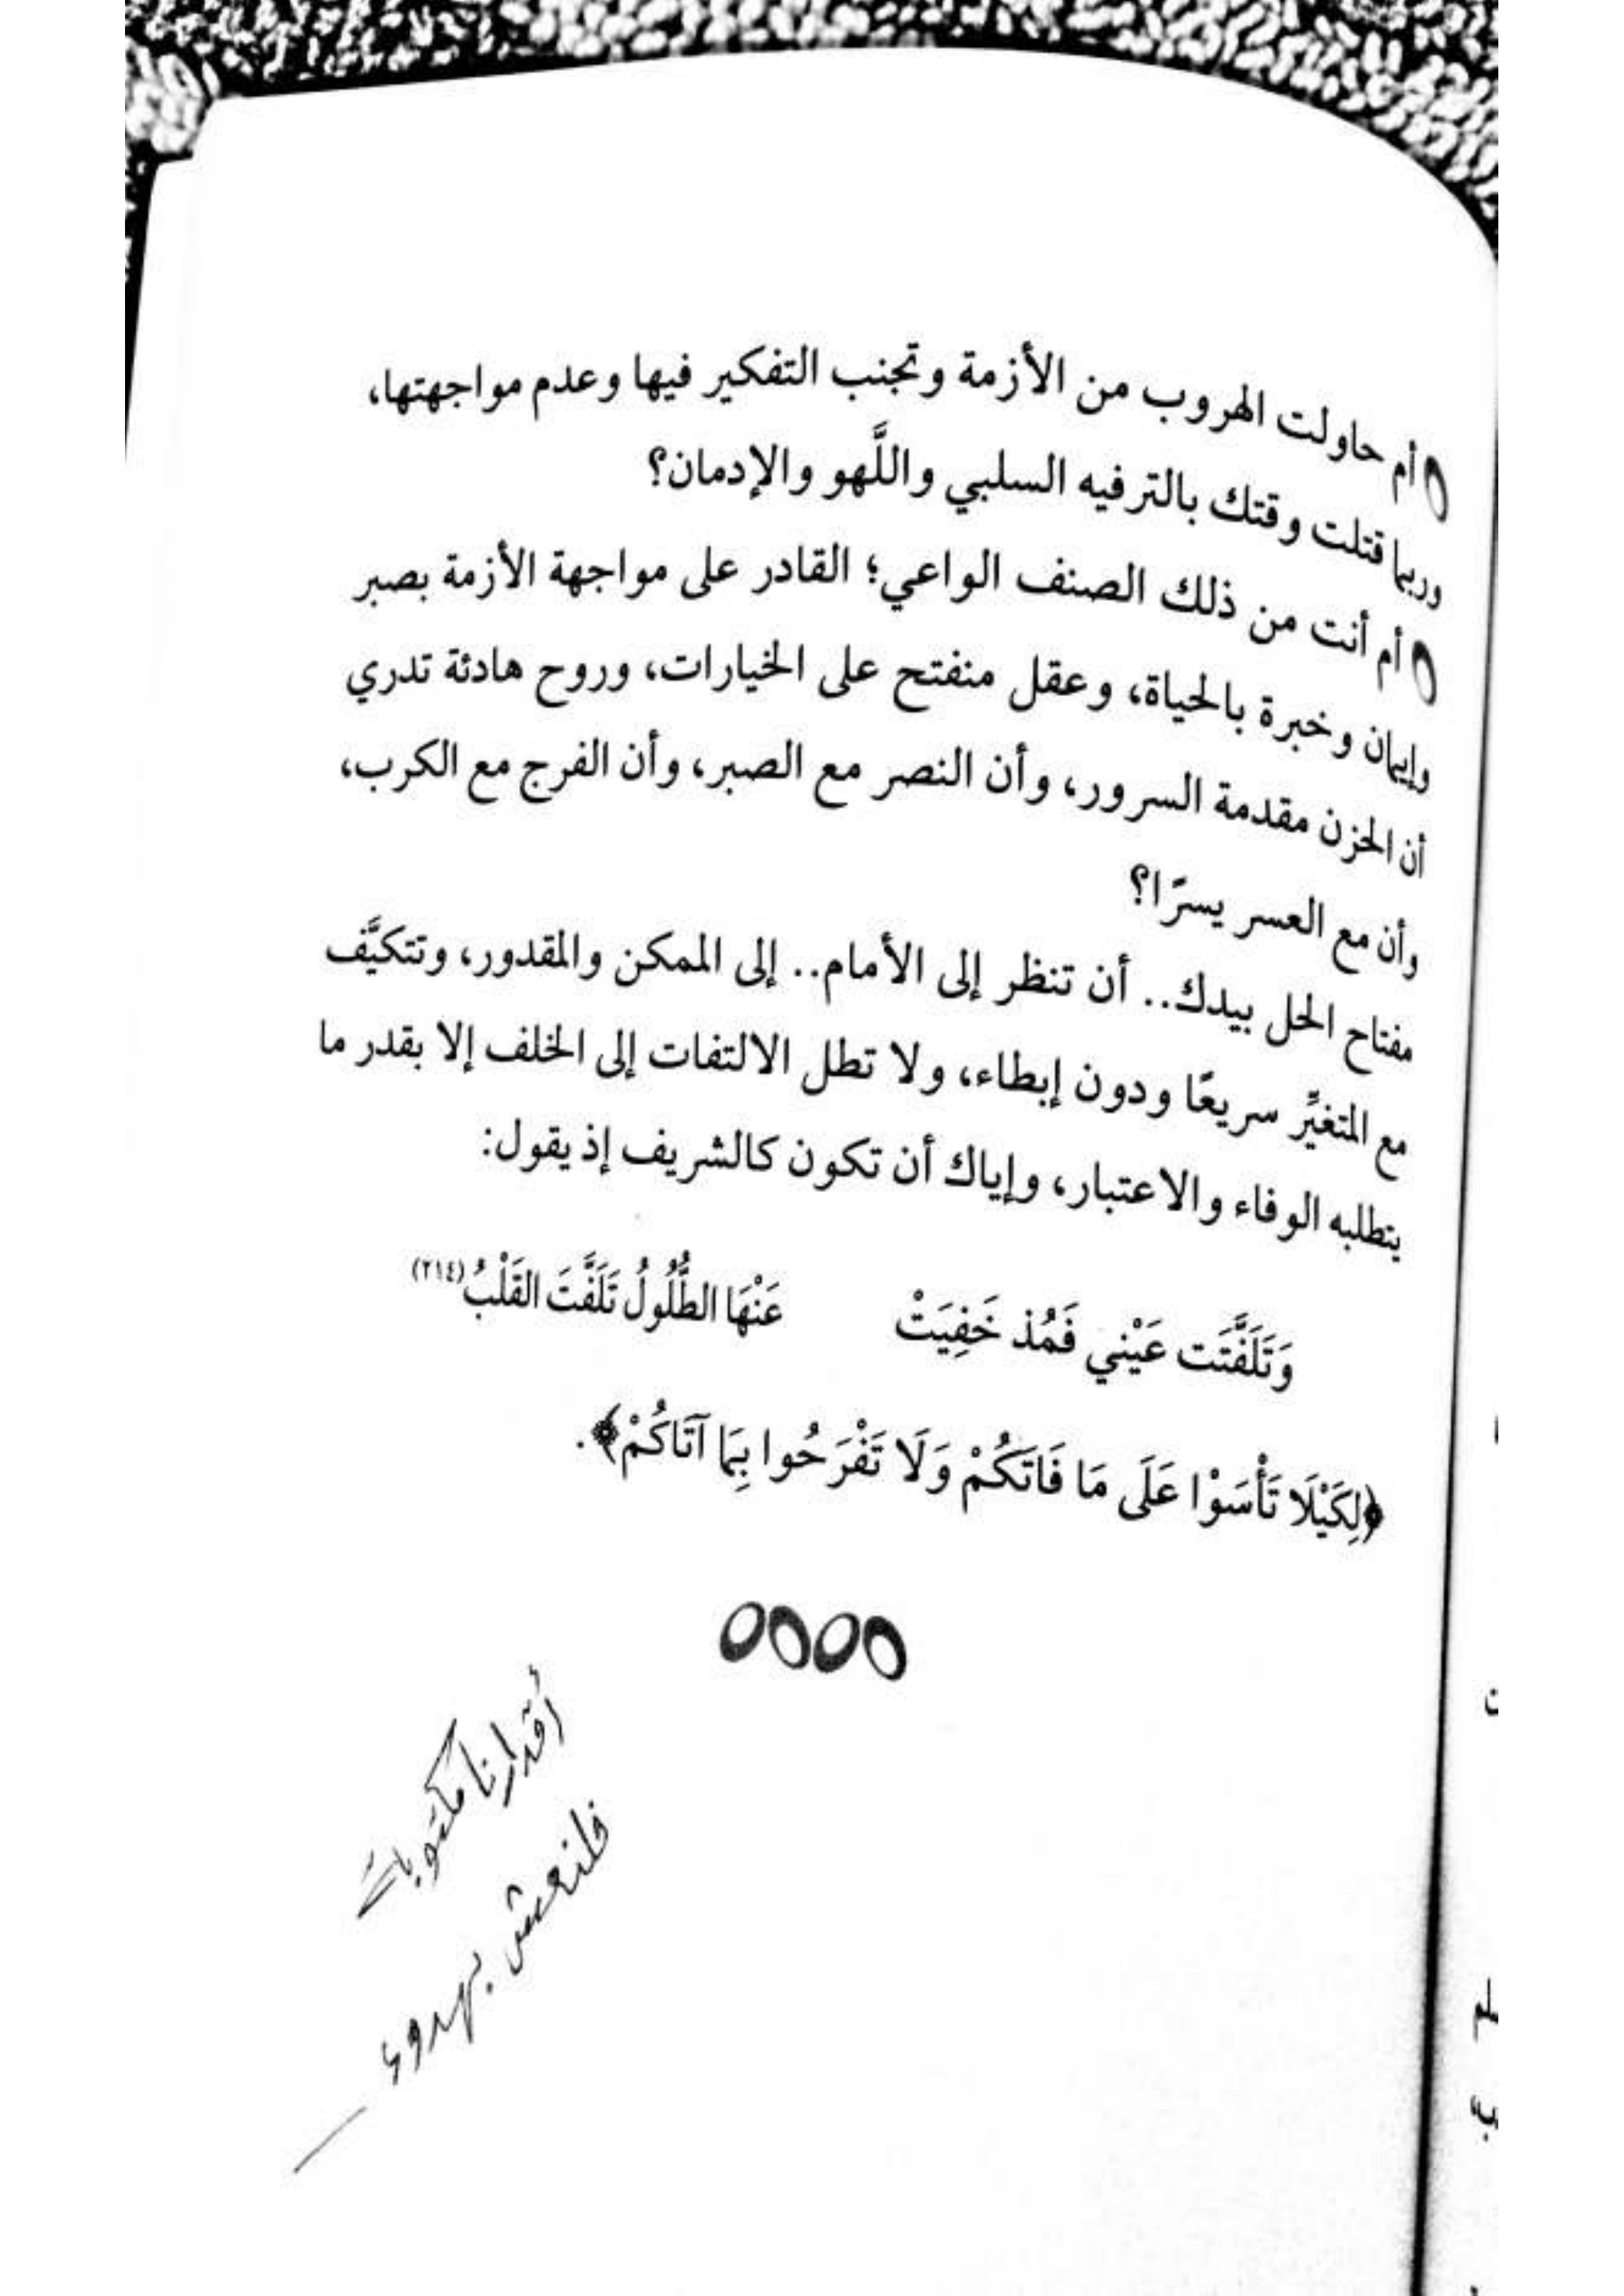 أم حاولت الهروب من الأزمة وتجنب التفكير فيها وعدم مواجهتها،
وربما قتلت وقتك بالترفيه السلبي واللَّهو والإدمان؟
أم أنت من ذلك الصنف الواعي؛ القادر على مواجهة الأزمة بصبر
وإيمان وخبرة بالحياة، وعقل منفتح على الخيارات، وروح هادئة تدري
أن الحزن مقدمة السرور، وأن النصر مع الصبر، وأن الفرج مع الكرب،
وأن مع العسر يسرًا؟
مفتاح الحل بيدك.. أن تنظر إلى الأمام.. إلى الممكن والمقدور، وتتكيَّف
مع المتغيِّر سريعًا ودون إبطاء، ولا تطل الالتفات إلى الخلف إلا بقدر ما
يتطلبه الوفاء والاعتبار، وإياك أن تكون كالشريف إذ يقول:
وَتَلَفَّتَت عَيْني فَمُذ خَفِيَتْ عَنْهَا الطُّلُولُ تَلَفَّتَ القَلْبُ (٢١٤)
﴿لِكَيْلَا تَأْسَوْا عَلَى مَا فَاتَكُمْ وَلَا تَفْرَحُوا بِمَا آتَاكُمْ﴾.
أقدارنا مكتوبة
فلنعش بهدوء